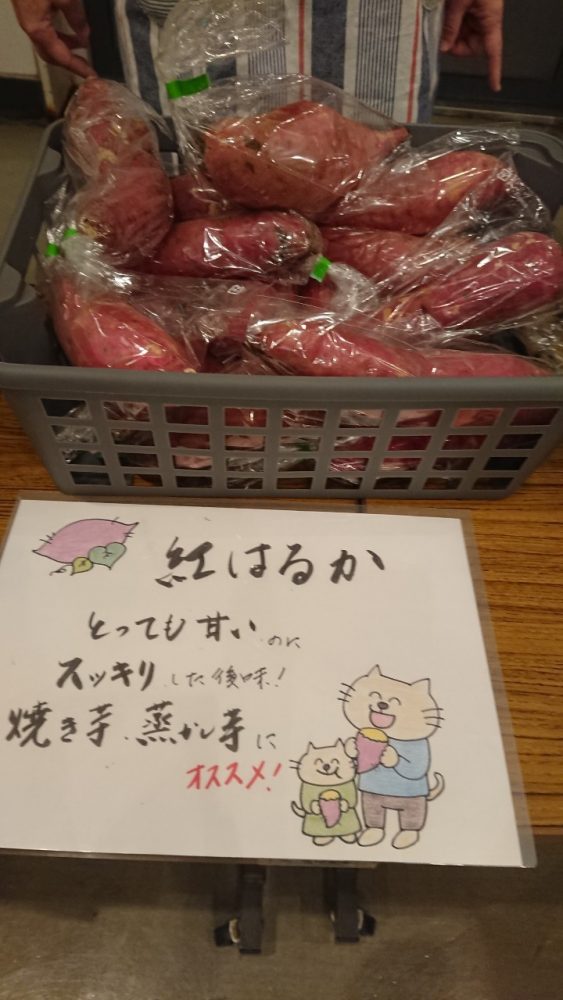 紅はるか
とっても甘いのに
スッキリした後味!
焼き芋、蒸かし芋に
オススメ!